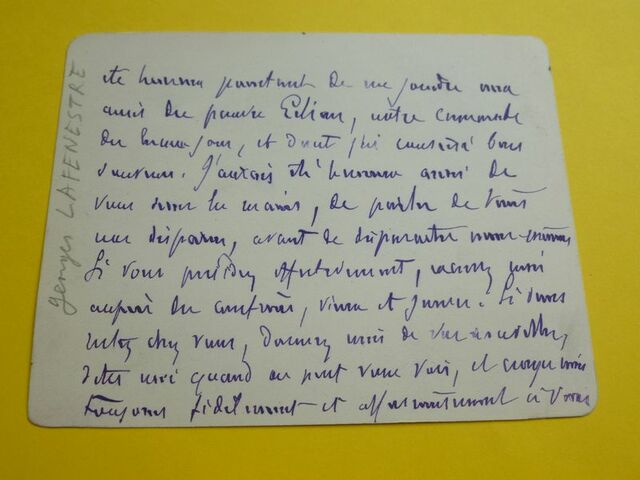 été heureux pourtant de me joindre aux
amis du pauvre, notre camarade
du beau jour, et dont j'ai conservé bon
souvenir. J'aurais été heureux aussi de
vous serrer la main, de parler de tous
nos disparus, avant de disparaître nous-mêmes
Si vous présidez effectivement,
auprès des confrères, vieux et jeunes. Si vous
restez chez vous, donnez moi de vos nouvelles,
dites moi quand on peut vous voir, et croyez moi
toujours fidèlement et affectueusement à vous
georges LAFENESTRE